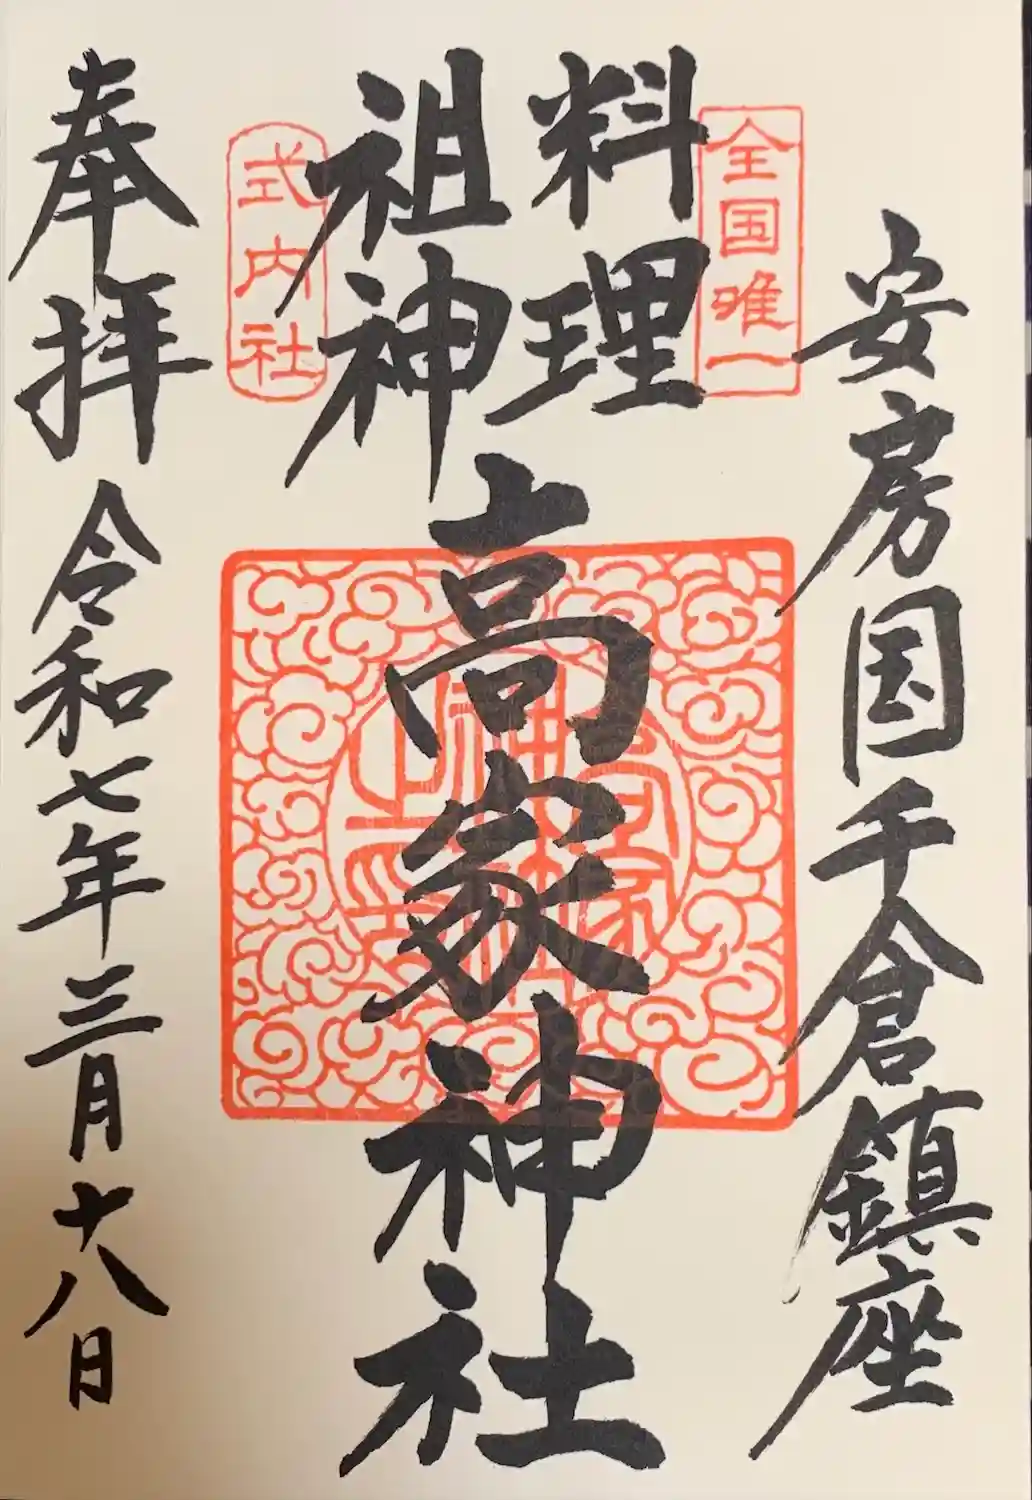 安房国千倉鎮座
全国唯一
料理
祖神
高家神社
式内社
奉拝
令和七年三月十八日